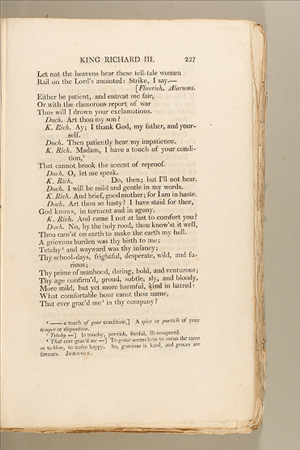 KING RICHARD III. 227
Let not the heavens hear these tell-tale women
Rail on the Lord's anointed: Strike, I say.—
[Flourish. Alarums.
Either be patient, and entreat me fair,
Or with the clamorous report of war
Thus will I drown your exclamations.
Duch. Art thou my son?
K. Rich. Ay; I thank God, my father, and your-
self.
Duch. Then patiently hear my impatience.
K. Rich. Madam, I have a touch of your condi-
tion,
That cannot brook the accent of reproof.
Duch. O, let me speak.
K. Rich. Do, then; but I'll not hear.
Duch. I will be mild and gentle in my words.
K. Rich. And brief, good mother; for I am in haste.
Duch. Art thou so hasty? I have staid for thee,
God knows, in torment and in agony.
K. Rich. And came I not at last to comfort you?
Duch. No, by the holy rood, thou know'st it well,
Thou cam'st on earth to make the earth my hell.
A grievous burden was thy birth to me;
Tetchy and wayward was thy infancy;
Thy school-days, frightful, desperate, wild, and fu-
rious;
Thy prime of manhood, daring, bold, and venturous;
Thy age confirm'd, proud, subtle, sly, and bloody,
More mild, but yet more harmful, kind in hatred:
What comfortable hour canst thou name,
That ever grac'd me in thy company?
— a touch of your condition,] A spice or particle of your
temper or disposition.
Tetchy —] Is touchy, peevish, fretful, ill-tempered.
That ever grac'd me —] To grace seems here to mean the same
as to bless, to make happy. So, gracious is kind, and graces are
favours. JOHNSON.